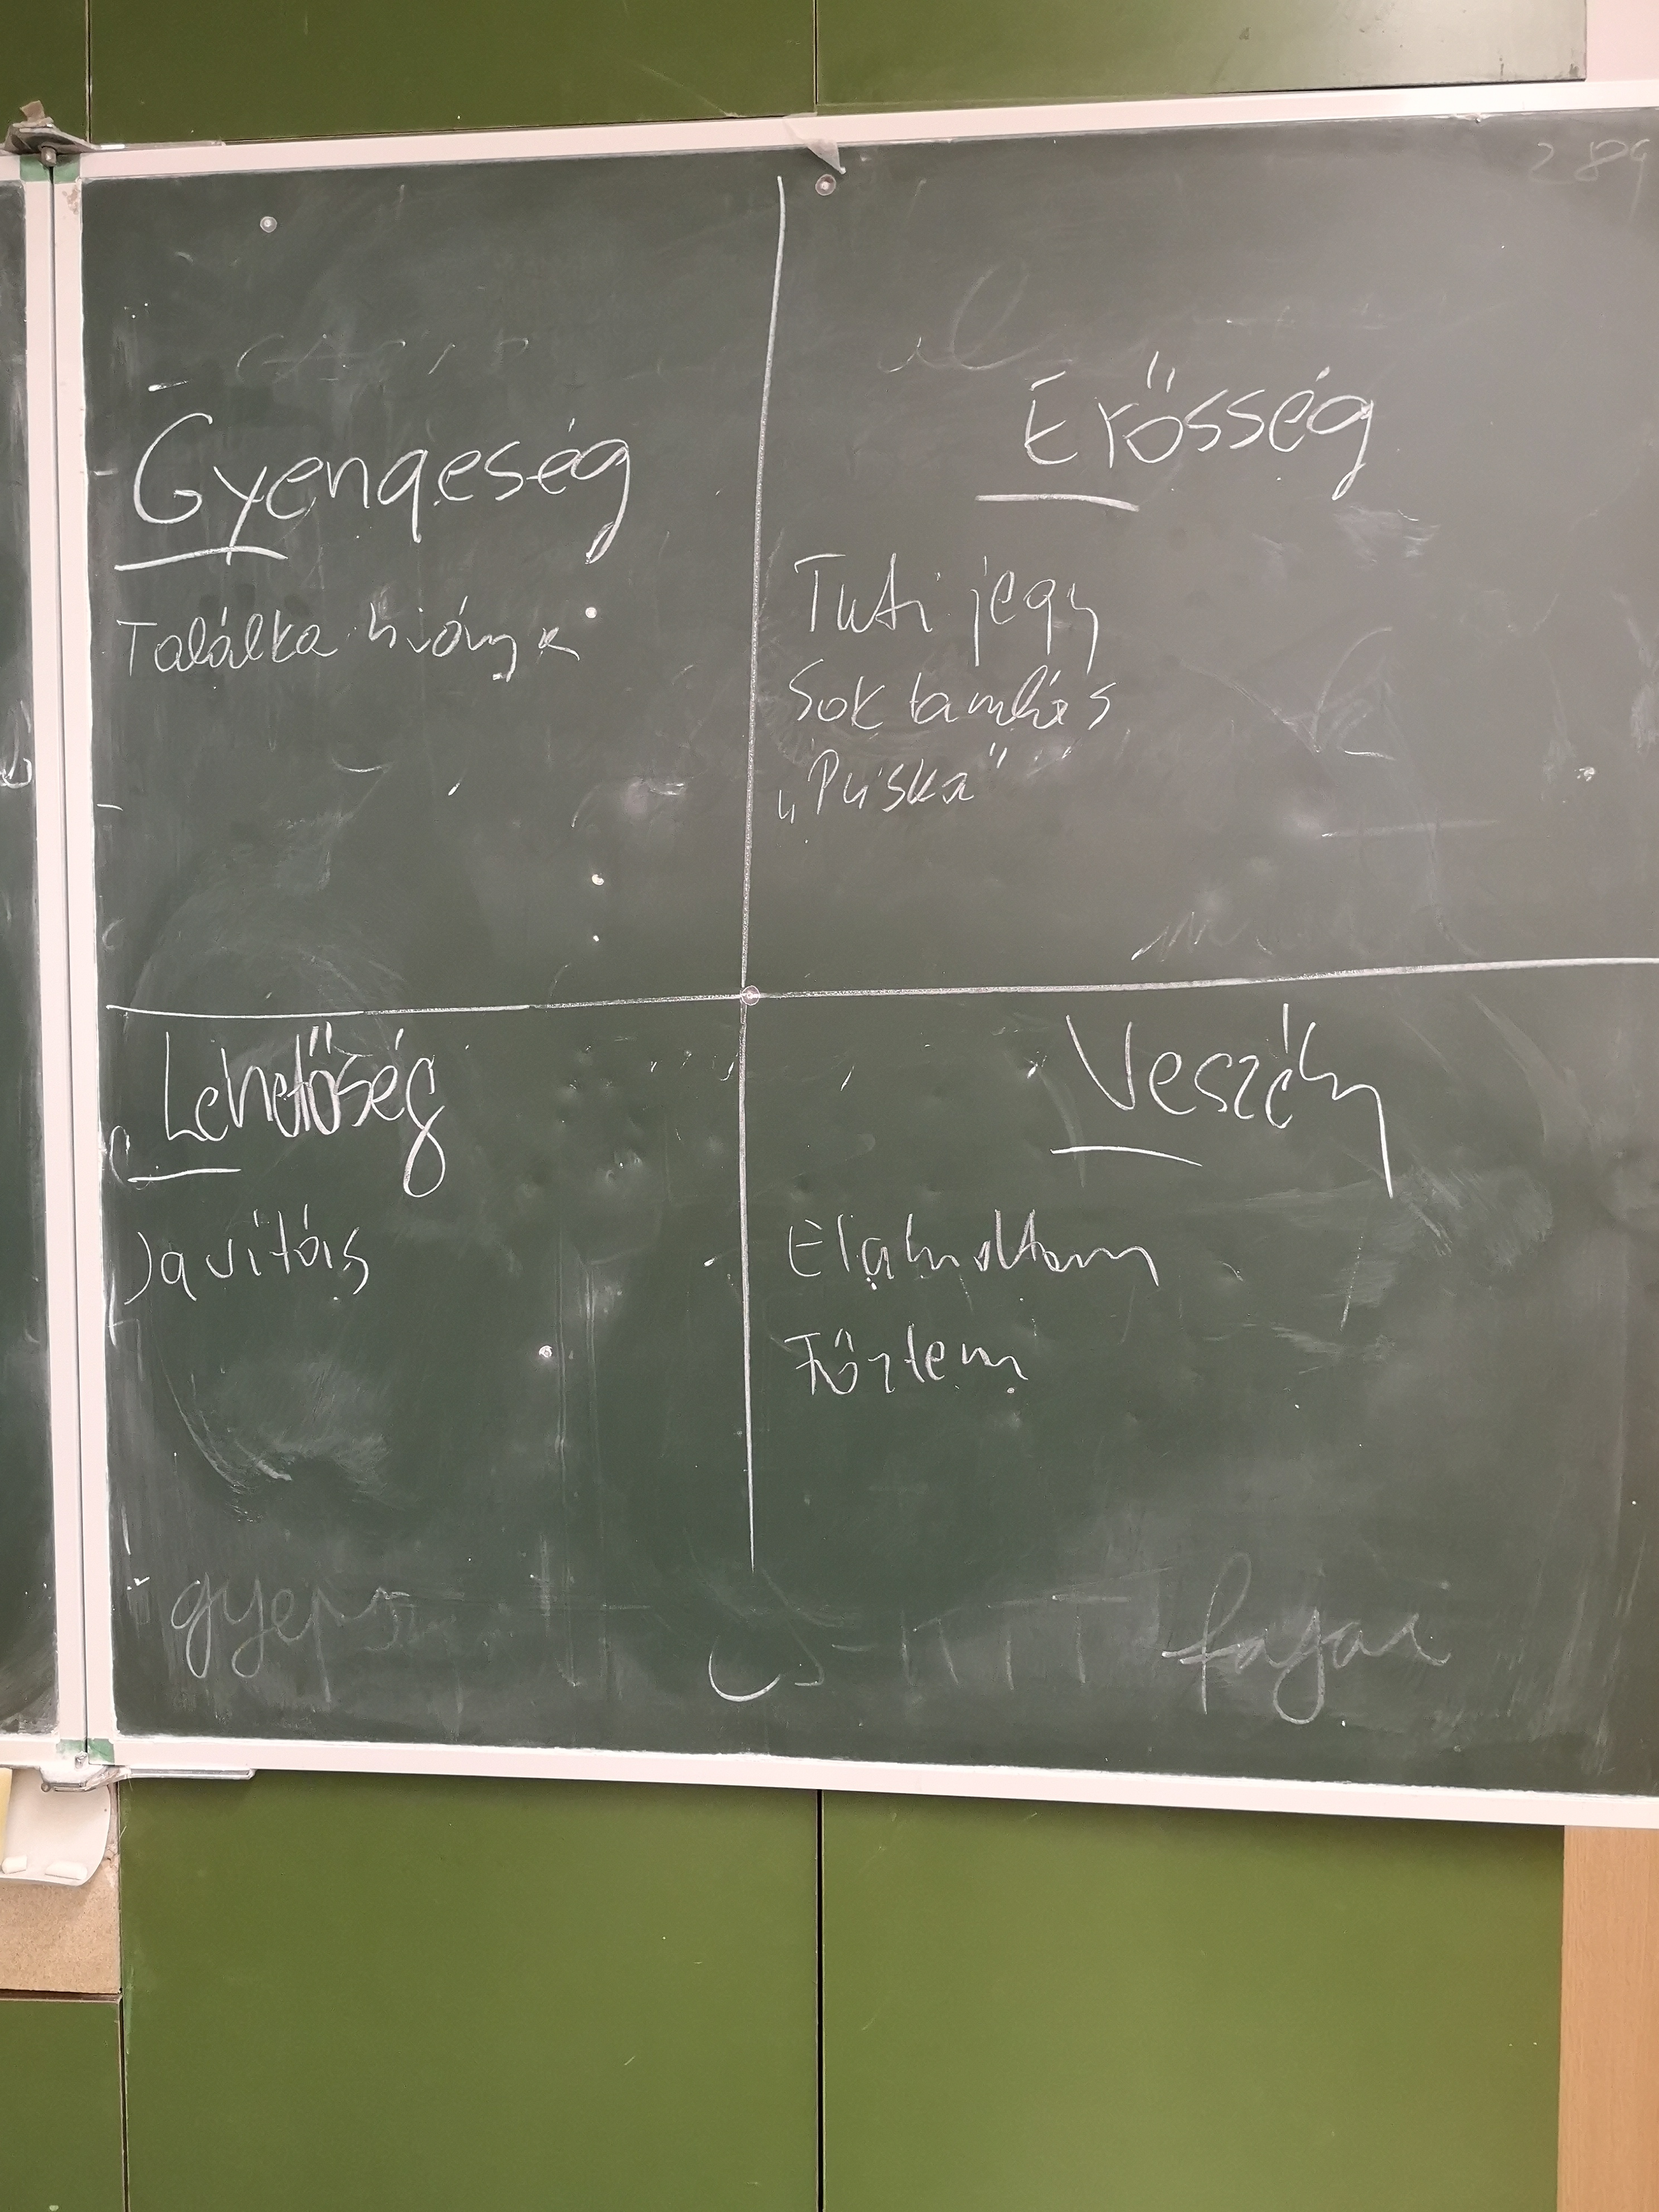 289
Gyengeség
Találka hiánya
Erősség
Tuti jegy
Sok tanulás
„Puska”
Lehetőség
Javítás
Veszély
Elaludtam
Főztem